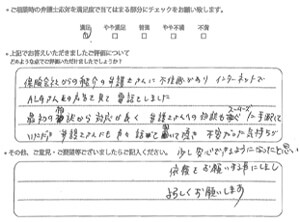 ・ご相談時の弁護士応対を満足度で当てはまる部分にチェックをお願い致します。
満足 やや満足 普通 やや不満 不満
・上記でお答えいただきましたご評価について
どのような点でご評価いただけましたでしょうか?
保険会社からの紹介の弁護士さんに不信感があり インターネットで
ALGさんを見て電話をしました
最初の対応から対応が良く 弁護士さんの対応も スムーズ
いただき 弁護士さんにも 話が 聞いて頂き 不安だった気持ちが
少し安心できるようになったと思い
・その他、ご意見・ご要望等ございましたらご記入ください。
依頼をお願いする事にしました
よろしくお願いします